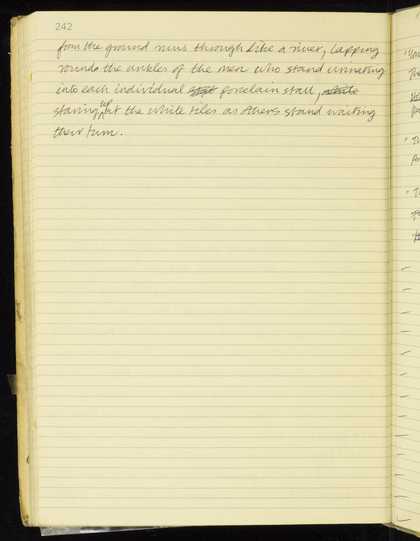 242
from the ground runs through like a river, lapping
rounds the ankles of the men who stand urinating
into each individual porcelain stall,
staring up at the white tiles as others stand waiting
their turn.